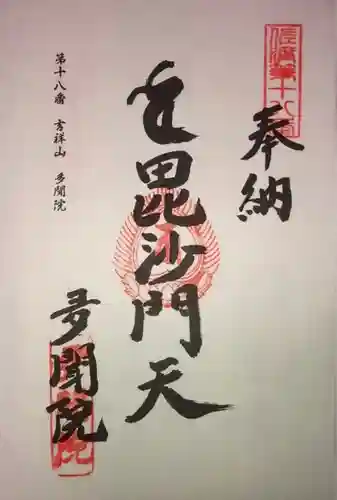 奉納
毘沙門天
多聞院
第十八番 吉祥山 多聞院